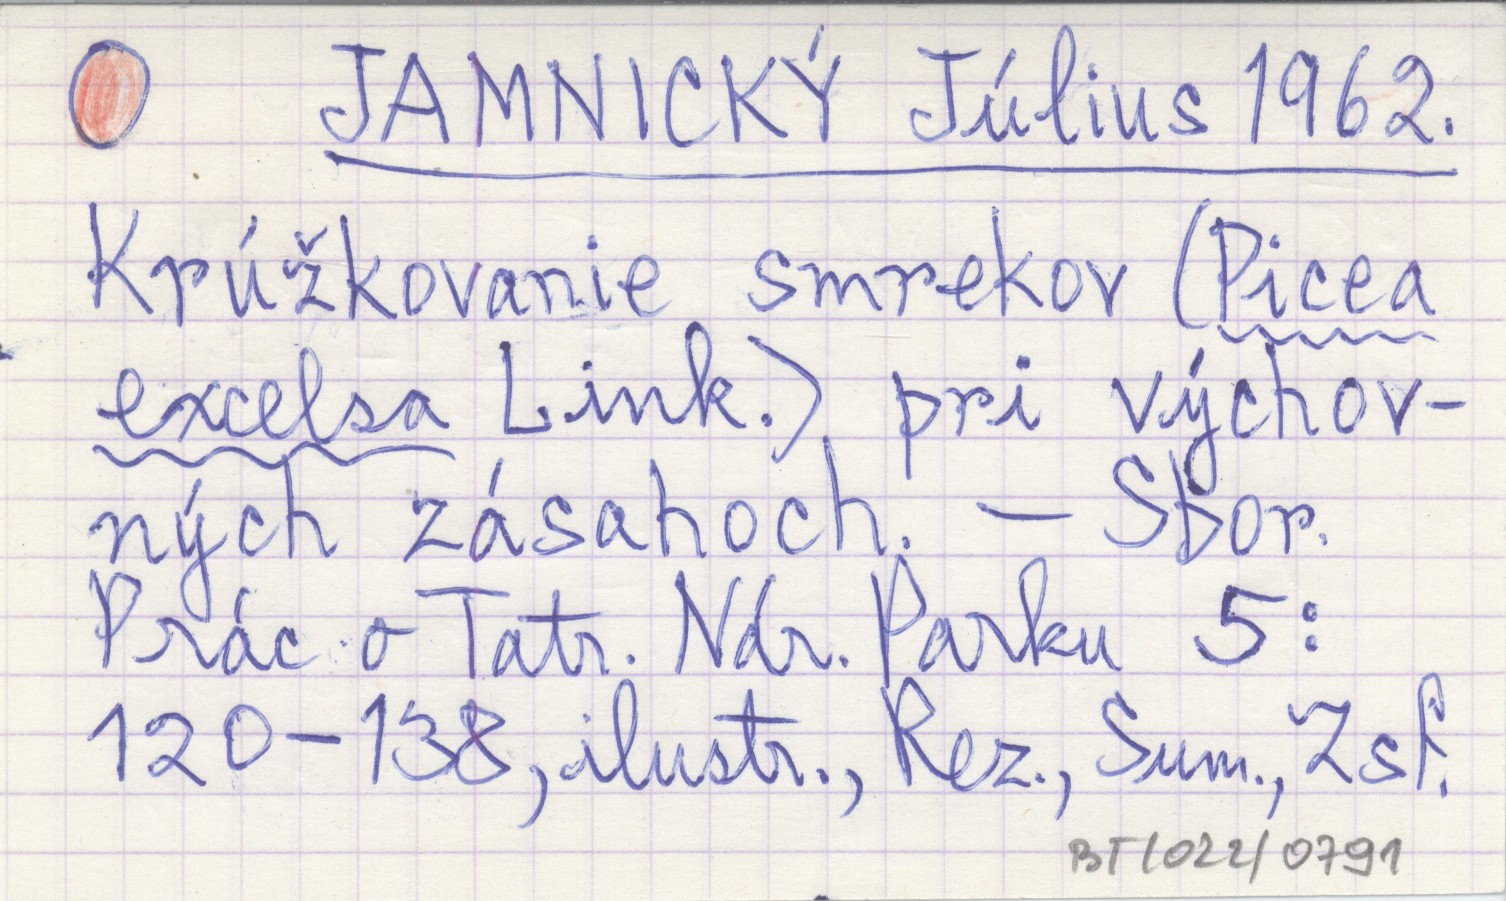 JAMNICKÝ Július 1962.
Krúžkovanie smrekov (Picea
excelsa Link.) pri výchov-
ných zásahoch. – Sbor.
Prác o Tatr. Ndr. Parku 5:
120–138, ilustr., Rez., Sum., Zsf.
BT/022/0791